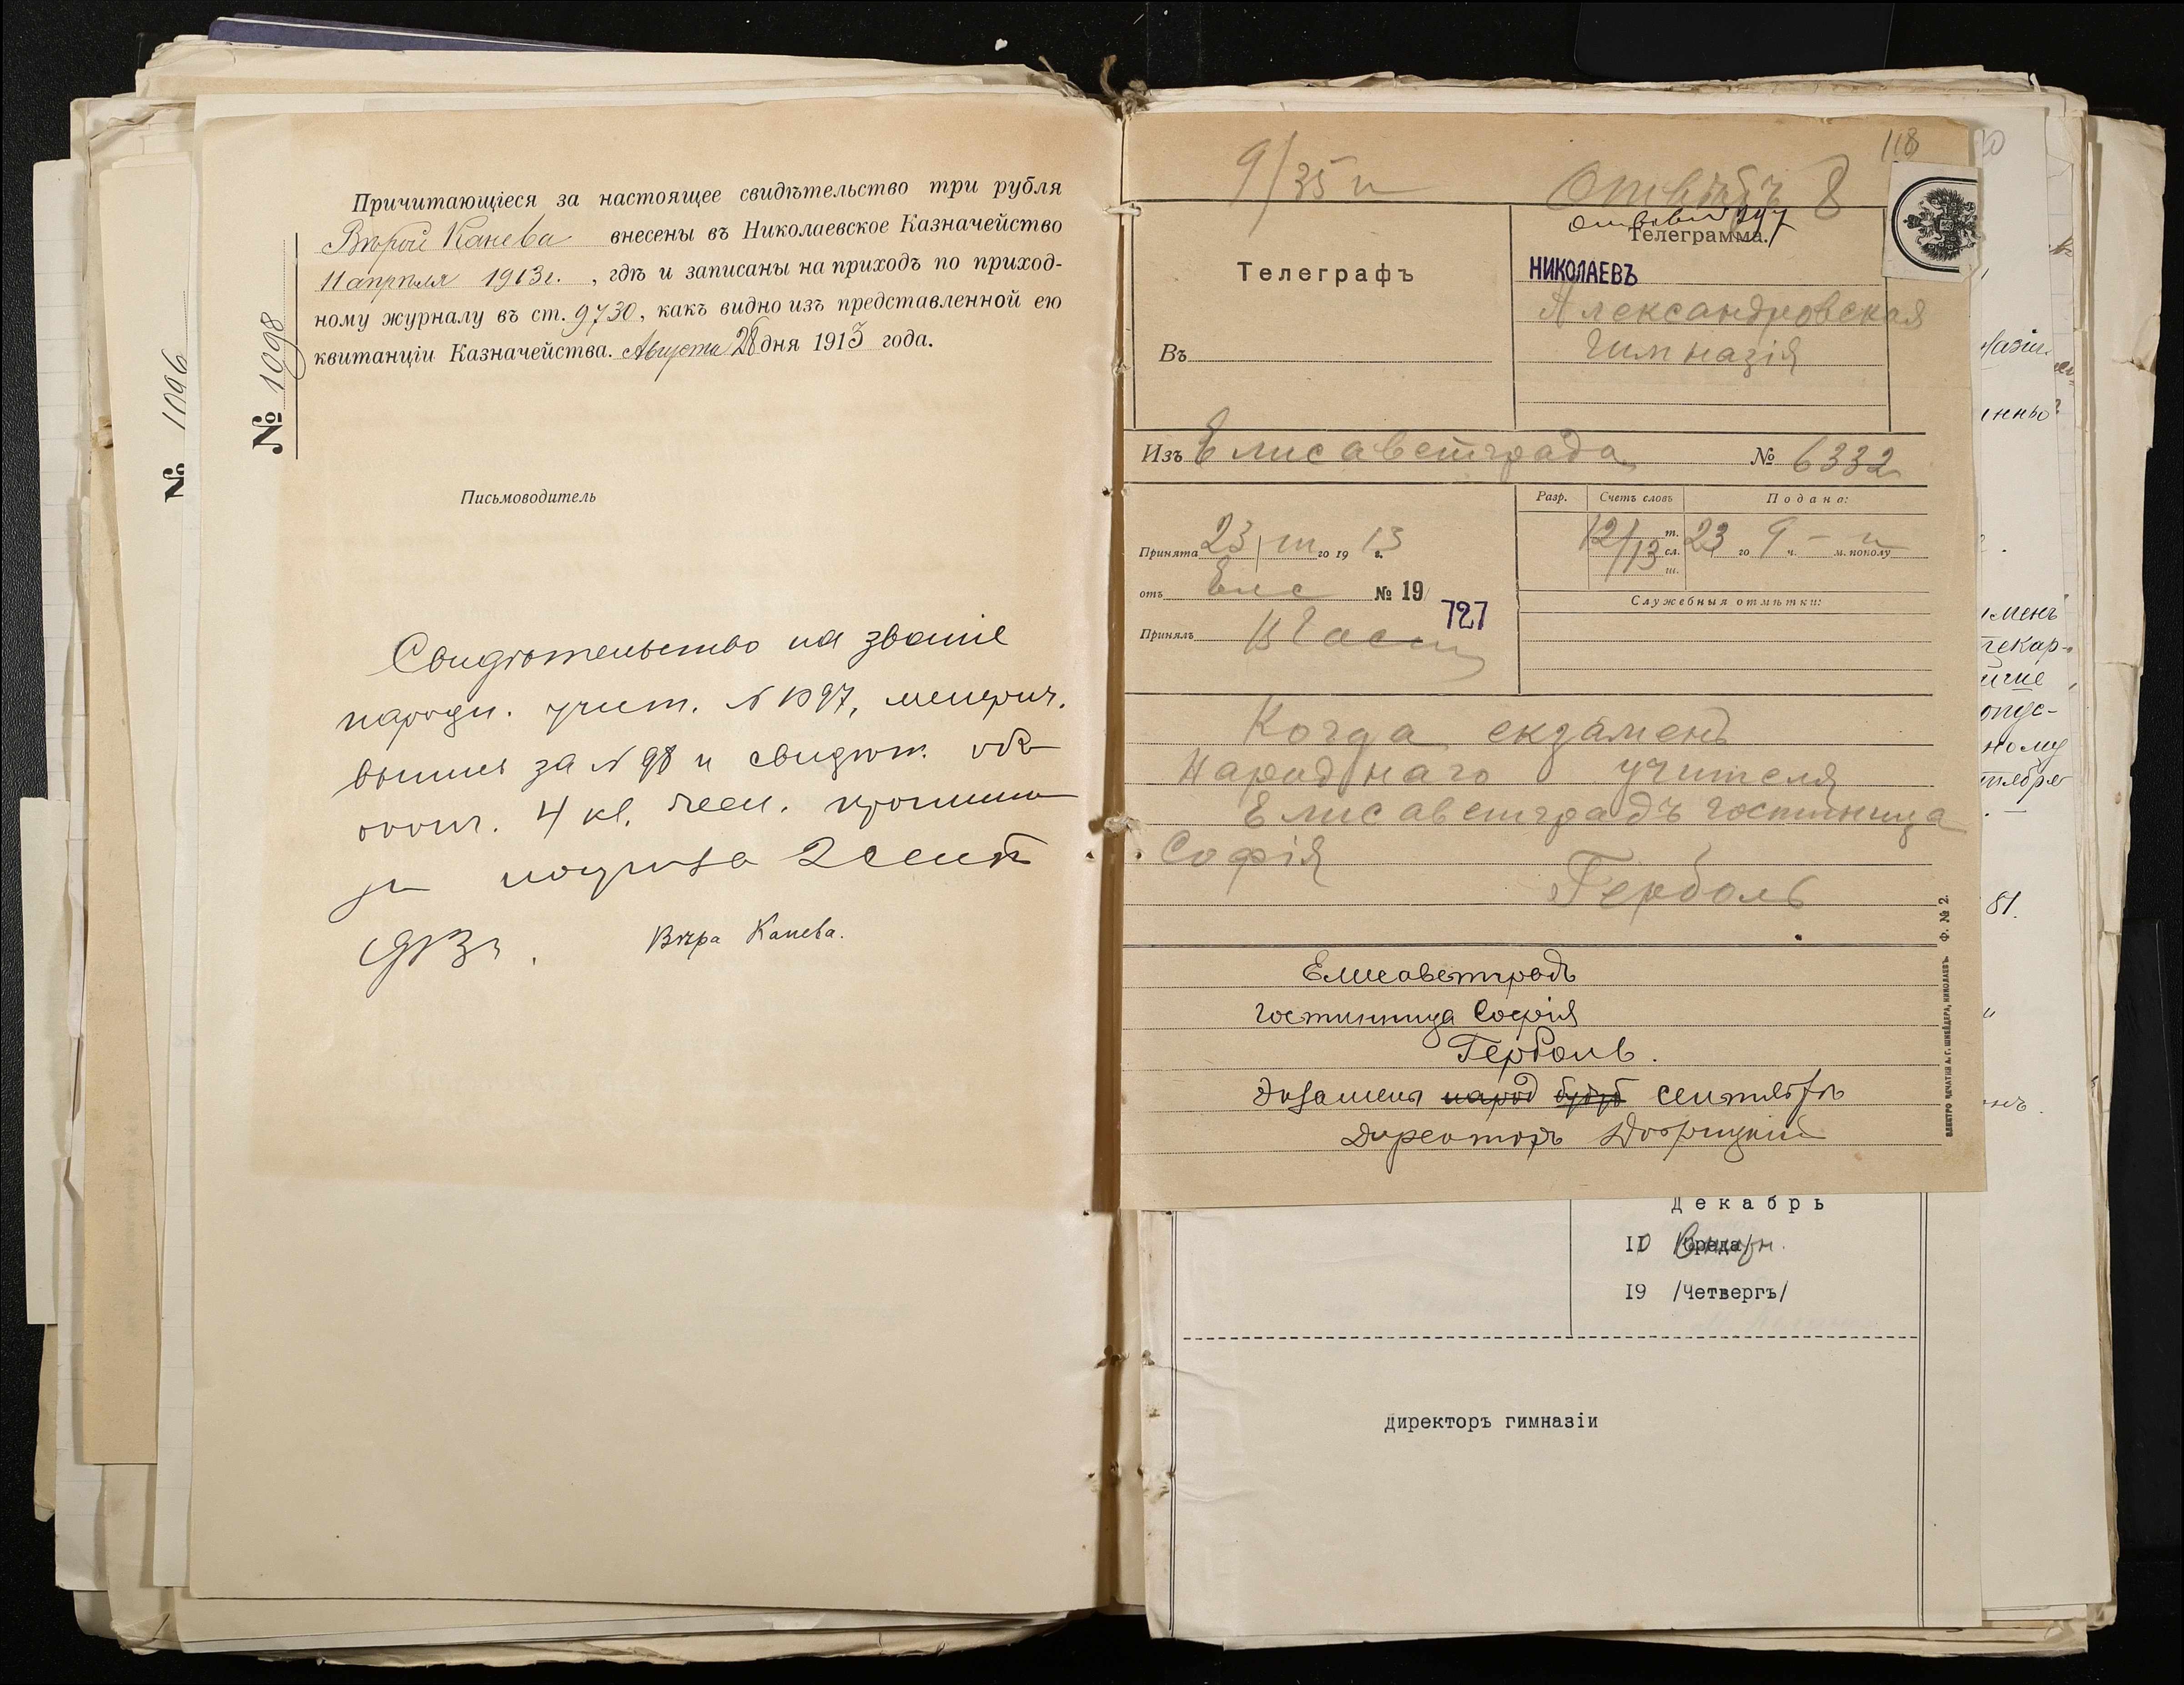 Причитающіеся за настоящее свидѣтельство три рубля
Вѣрой Каневa внесены въ Николаевское Казначейство
11 апрѣля 1913г. , гдѣ и записаны на приходъ по приход-
ному журналу въ ст. 9730, какъ видно изъ представленной ею
квитанціи Казначейства. Августа 28 дня 1913 года.
№ 1098
№ 1096
Письмоводитель
Свидѣтельство на званіе
народн. учит. № 1097, метрич.
за № 98 и свидѣт. объ
4 кл. гимн.
2 сент
1913 г.
Вѣра Канева.
118
9/35 п
Отвѣтъ 8
Телеграмма.
Телеграфъ
НИКОЛАЕВЪ
Александровская
Гимназія
Въ
Изъ Елисаветграда № 6332
Разр. Счетъ словъ Подана:
Принята 23/III го 1913 г.
12/13 т. сл. ш. 23 го 9 ч. — м. пополу
отъ Елс № 19/
727
Служебныя отмѣтки:
Принялъ
Когда екзаменъ
Народнаго учителя
Елисаветградъ гостиница
Софія
Герболь
Елисаветградъ
гостинница Софія
Герболь.
Экзамены народ будутъ сентябрѣ
Директоръ
ЭЛЕКТРО ПЕЧАТНЯ А. Г. ШНЕЙДЕРА, НИКОЛАЕВЪ. Ф. № 2.
Декабрь
10 /Среда/
19 /Четвергъ/
директоръ гимназіи
81.